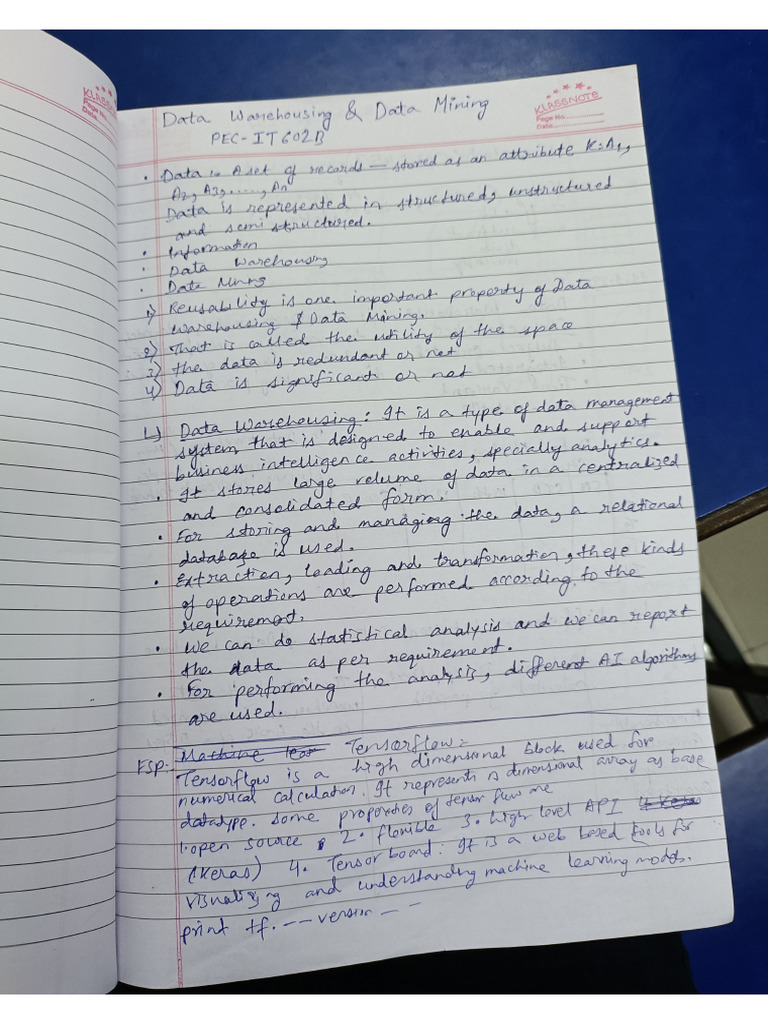 KLASSNOTE
Page No.
Date
KLASSNOTE
Page No.
Date
Data Warehousing & Data Mining
PEC-IT602B
• Data is A set of records — stored as an attribute K:A1,
A2, A3, ......, An
Data is represented in structured, unstructured
and semi structured.
• Information
• Data Warehousing
• Data Mining
1) Reusability is one important property of Data
Warehousing & Data Mining.
2) That is called the utility of the space
3) the data is redundant or not
4) Data is significant or not
L) Data Warehousing: It is a type of data management
system, that is designed to enable and support
business intelligence activities, specially analytics.
• It stores large volume of data in a centralized
and consolidated form.
• For storing and managing the data, a relational
database is used.
• Extraction, loading and transformation, these kinds
of operations are performed according to the
requirement.
• We can do statistical analysis and we can report
the data as per requirement.
• For performing the analysis, different AI algorithms
are used.
ESP: Machine lear Tensorflow:
Tensorflow is a high dimensional block used for
numerical calculation. It represents n dimensional array as base
datatype. Some properties of tensor flow are
1. open source 2. flexible 3. high level API
(Keras) 4. Tensor board: It is a web based tools for
visualizing and understanding machine learning models.
print tf. -- version --